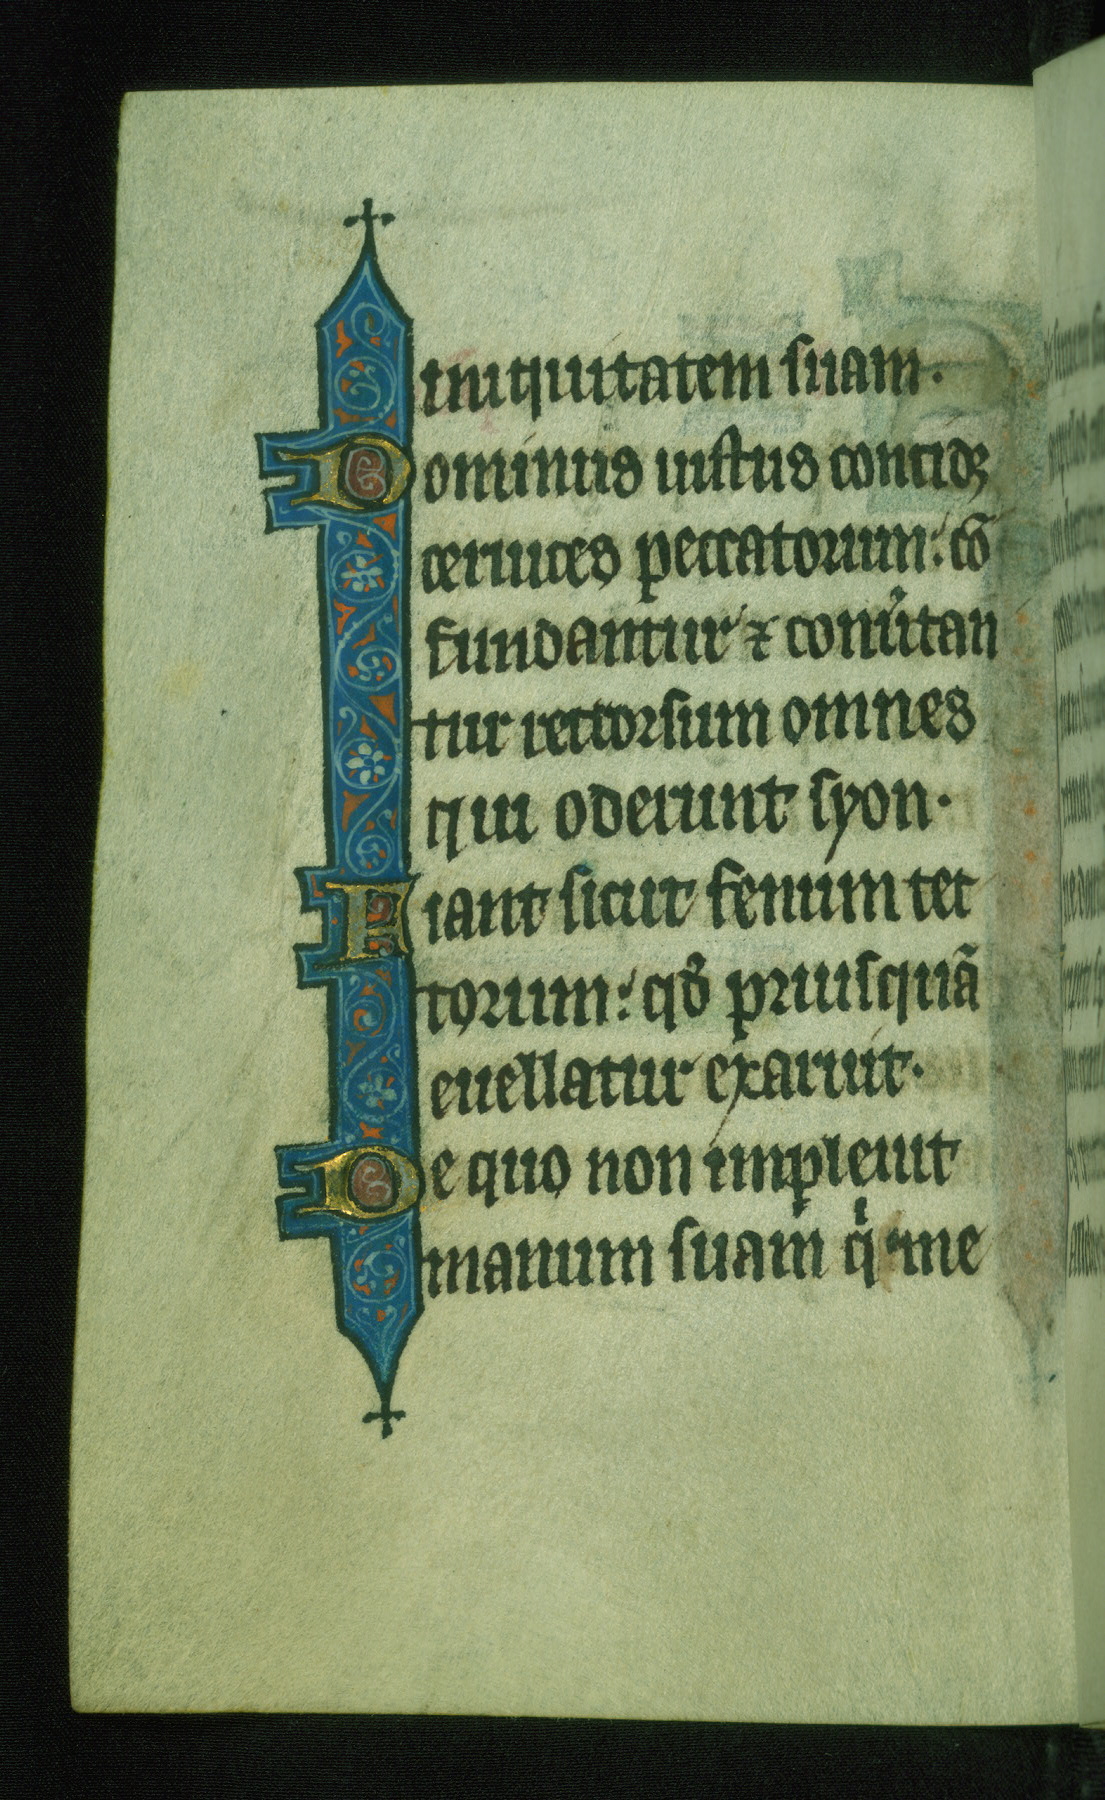 iniquitatem suam.
Dominus iustus concidꝫ
ceruices peccatorum: cō
fundantur ⁊ conu̓tan
tur retrorsum omnes
qui oderunt syon.
Fiant sicut fenum tec
torum: qđ priusquā
euellatur exaruit.
De quo non impleuit
manum suam qͥ me